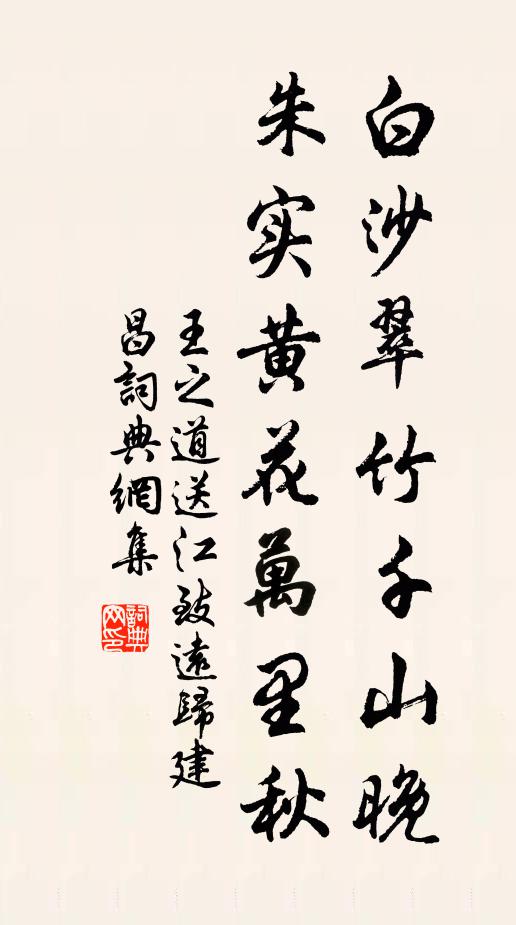 白沙翠竹千山晚
朱实黄花萬里秋
王之道送江致遠歸建
昌詞典網集
詞典
网印